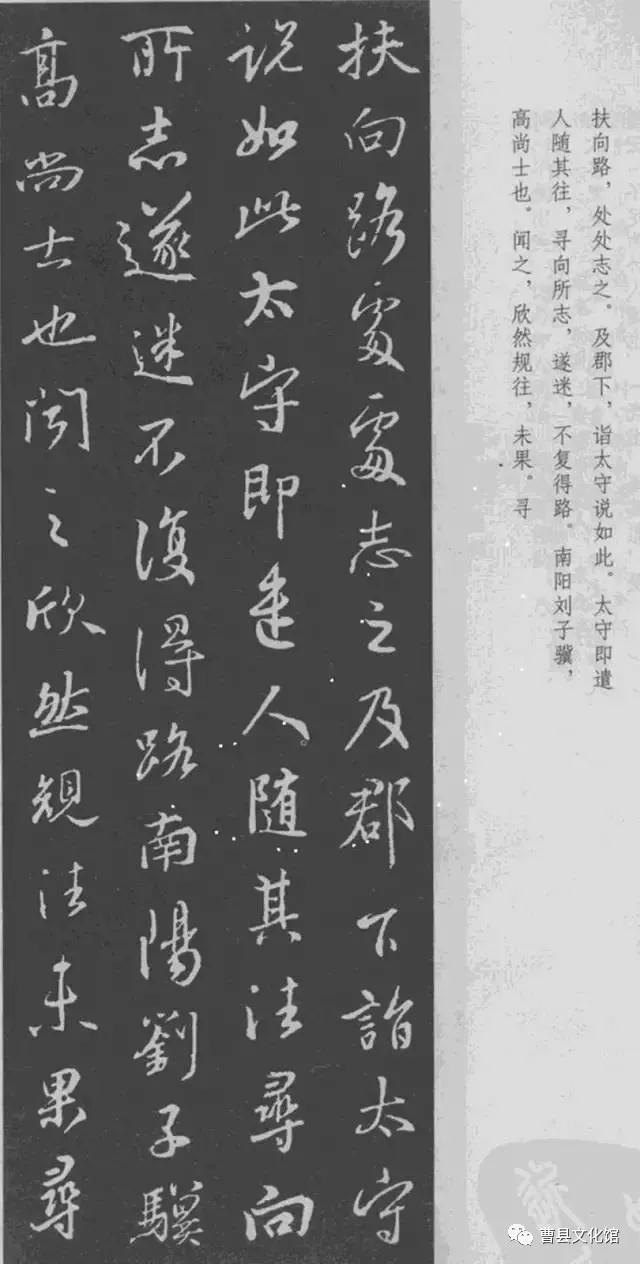 扶向路處處志之及郡下詣太守
说如此太守即遣人随其往尋向
所志遂迷不復得路南陽劉子驥
高尚士也闻之欣然規往未果尋
扶向路，处处志之。及郡下，诣太守说如此。太守即遣
人随其往，寻向所志，遂迷，不复得路。南阳刘子骥，
高尚士也。闻之，欣然规往，未果。寻
曹县文化馆